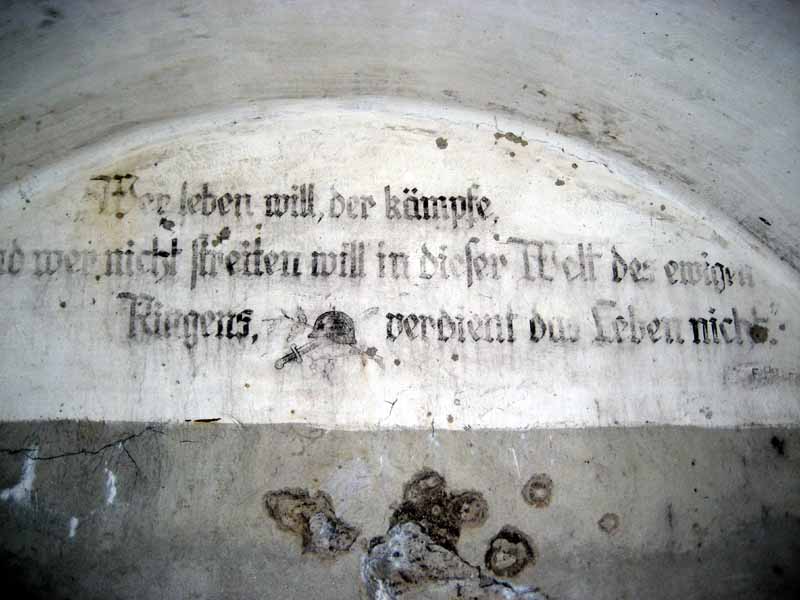 Wer leben will, der kämpfe,
nd wer nicht streiten will in dieser Welt des ewigen
Ringens, verdient das Leben nicht."